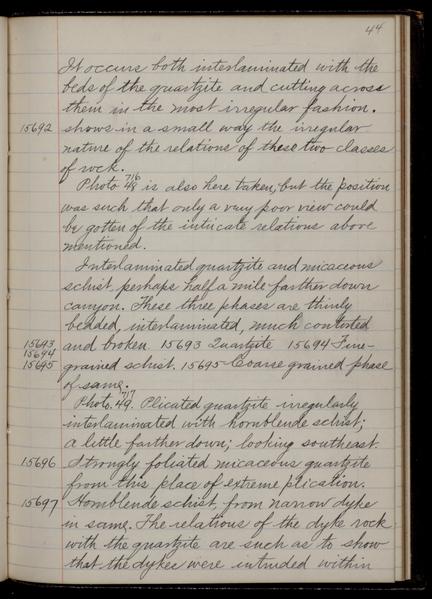 44
It occurs both interlaminated with the
beds of the quartzite and cutting across
them in the most irregular fashion.
15692 shows in a small way the irregular
nature of the relations of these two classes
of rock.
Photo 716 48 is also here taken; but the position
was such that only a very poor view could
be gotten of the intricate relations above
mentioned.
Interlaminated quartzite and micaceous
schist perhaps half a mile farther down
canyon. These three phases are thinly
bedded, interlaminated, much contorted
15693 and broken. 15693 Quartzite 15694 Fine-
15694
15695 grained schist. 15695 Coarse grained phase
of same.
Photo. 717 49. Plicated quartzite irregularly
interlaminated with hornblende schist;
a little farther down; looking southeast.
15696 Strongly foliated micaceous quartzite
from this place of extreme plication.
15697 Hornblende schist from narrow dyke
in same. The relations of the dyke rock
with the quartzite are such as to show
that the dykes were intruded within